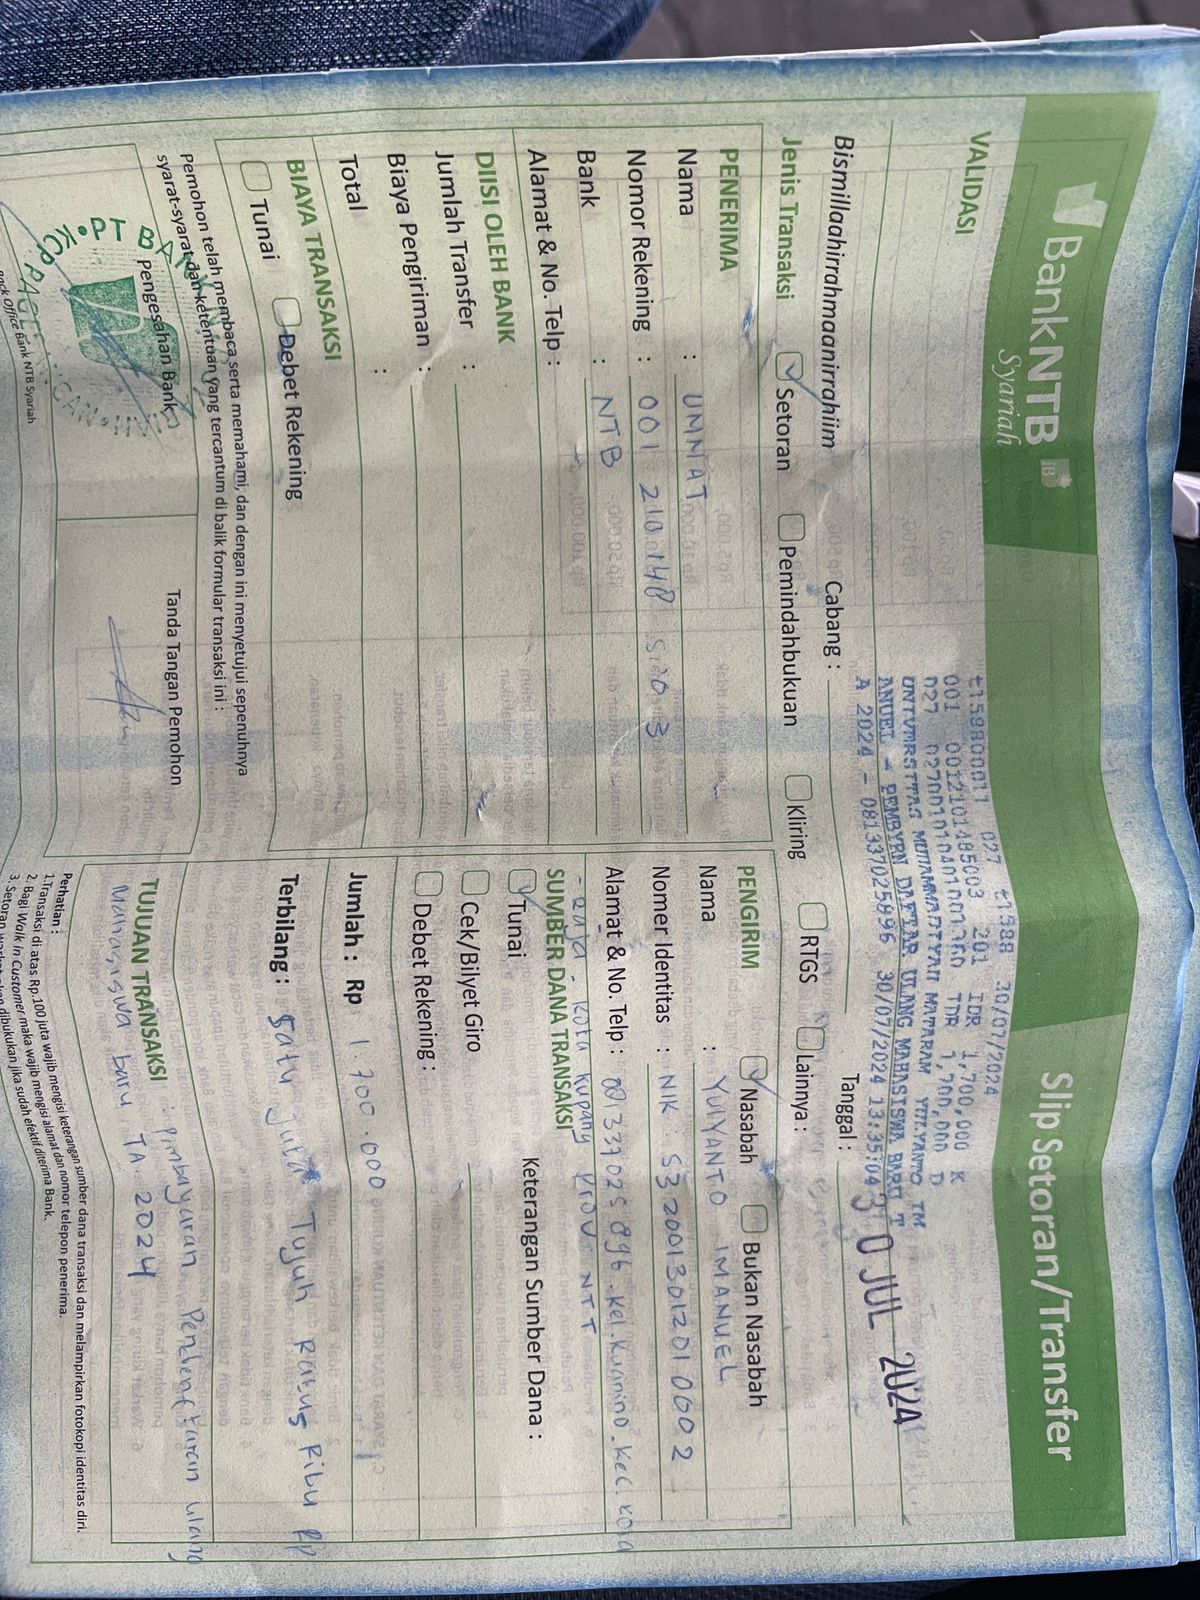 BankNTB
Syariah
Slip Setoran/Transfer
VALIDASI
t158800011 027 t1588 30/07/2024
001 0012101485003 201 IDR 1,700,000 K
027 027001010401001360 IDR 1,700,000 D
UNIVERSITAS MUHAMMADIYAH MATARAM YULYANTO IM
ANUEL - PEMBYRN DAFTAR ULANG MAHASISWA BARU T
A 2024 - 081337025896 30/07/2024 13:35:04
Bismillaahirrahmaanirrahiim
Cabang :
Tanggal : 30 JUL 2024
Jenis Transaksi Setoran Pemindahbukuan Kliring RTGS Lainnya :
PENERIMA
Nama : UMMAT
Nomor Rekening : 001 210 148 500 3
Bank : NTB
Alamat & No. Telp :
PENGIRIM Nasabah Bukan Nasabah
Nama : YULYANTO IMANUEL
Nomer Identitas : NIK. 5320013012010002
Alamat & No. Telp : 081337025896. Kel. Kuanino. Kec. Kota
- Raja - Kota Kupang Prov NTT
DIISI OLEH BANK
Jumlah Transfer :
Biaya Pengiriman :
Total :
SUMBER DANA TRANSAKSI Keterangan Sumber Dana :
Tunai
Cek/Bilyet Giro
Debet Rekening :
BIAYA TRANSAKSI
Tunai Debet Rekening
Jumlah : Rp 1.700.000
Terbilang : Satu juta Tujuh Ratus Ribu RP
Pemohon telah membaca serta memahami, dan dengan ini menyetujui sepenuhnya
syarat-syarat dan ketentuan yang tercantum di balik formular transaksi ini :
Pengesahan Bank
Tanda Tangan Pemohon
PT BANK
Back Office Bank NTB Syariah
TUJUAN TRANSAKSI : Pembayaran Pendaftaran ulang
Mahasiswa baru TA. 2024
Perhatian :
1.Transaksi di atas Rp.100 juta wajib mengisi keterangan sumber dana transaksi dan melampirkan fotokopi identitas diri.
2. Bagi Walk In Customer maka wajib mengisi alamat dan nomor telepon penerima.
3. Setoran dibukukan jika sudah efektif diterima Bank.